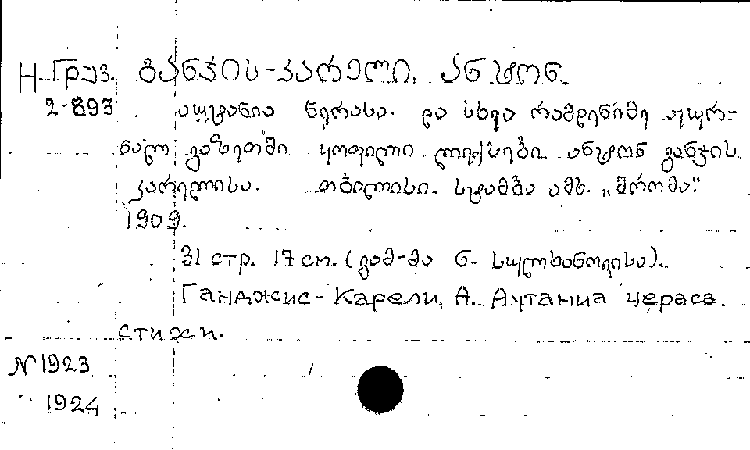 Н-Груз. განჯის-კარელი, ანტონ.
2-893 აფთანია ნერასა. და სხვა რამდენიმე ჟურ-
ნალ გაზეთში ყოფილი ლექსები ანტონ განჯის
კარელისა. თბილისი. სტამბა ამხ. „შრომა"
1909.
31 стр. 17 см. (გამ-მა ნ. სულხანოვისა).
Ганджис-Карели, А. Аутаниа чераса.
стихи.
N 1923
1924